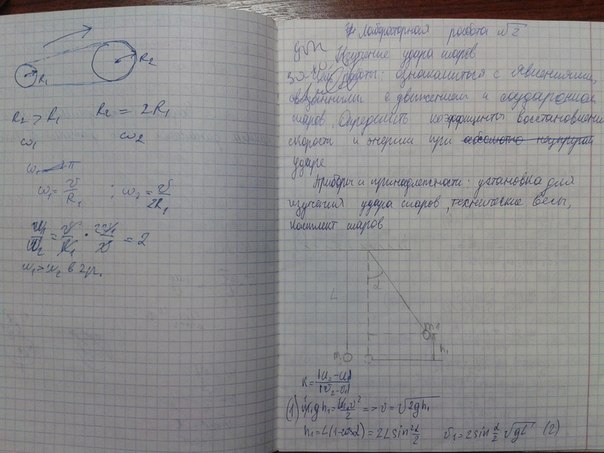 R₁
R₂
R₂ > R₁ R₂ = 2R₁
ω₁ ω₂
ω₁ = v/R₁ ; ω₂ = v/2R₁
ω₁/ω₂ = v/R₁ · 2R₁/v = 2
ω₁ > ω₂ в 2р.
Лабораторная работа №2
Изучение удара шаров
Цель работы: ознакомиться с явлениями,
связанными с движением и соударением
шаров. Определить коэффициенты восстановления
скорости и энергии при
ударе
Приборы и принадлежности: установка для
изучения удара шаров, технические весы,
комплект шаров
α
L
m₁
h₁
K = |u₂-u₁|/|v₂-v₁|
(1) m₁gh₁ = m₁v²/2 => v = √2gh₁
h₁ = L(1-cosα) = 2L sin² α/2 v₁ = 2sin α/2 √gL (2)